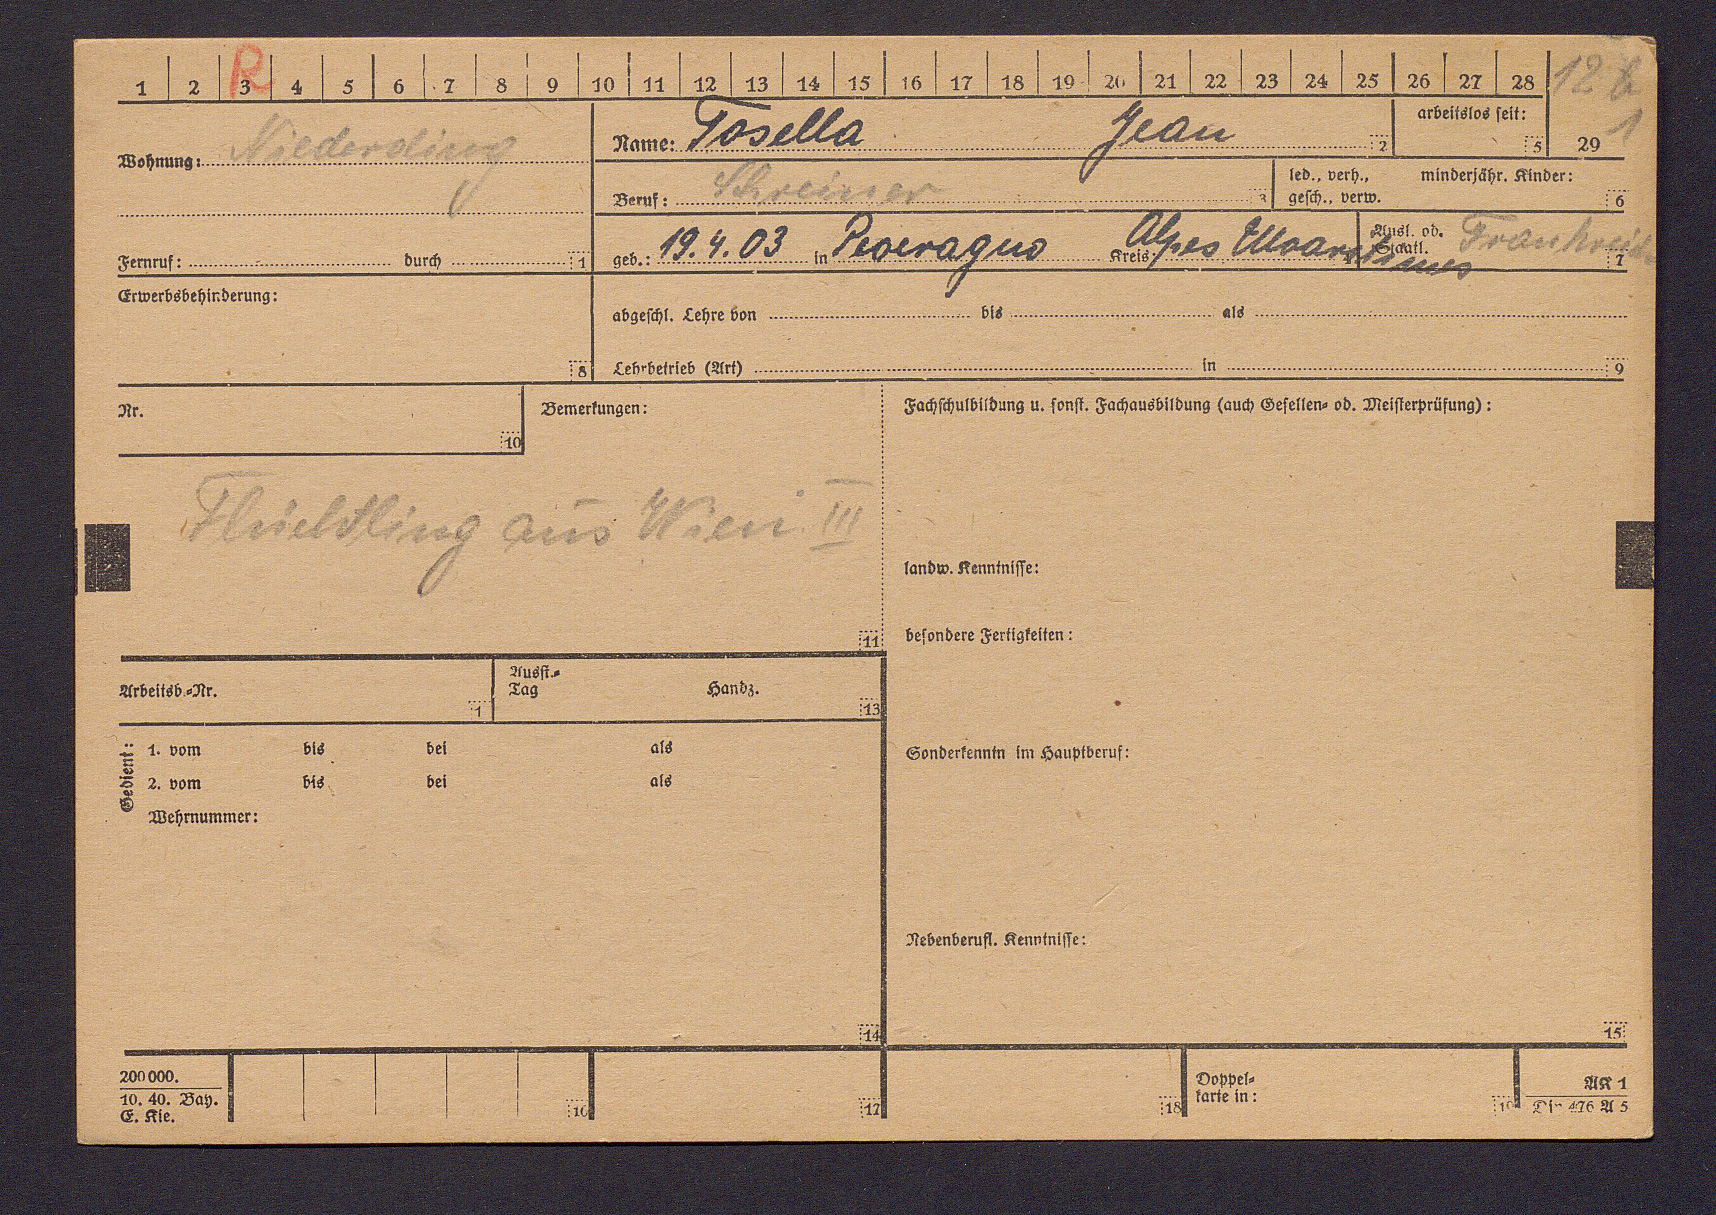 1 2 3 4 5 6 7 8 9 10 11 12 13 14 15 16 17 18 19 20 21 22 23 24 25 26 27 28
R
12 6
1
29
Wohnung: Niederding
Fernruf: durch 1
Name: Tosella Jean 2
arbeitslos seit: 5
Beruf: Schreiner 3
led., verh., gesch., verw.
minderjähr. Kinder: 6
geb.: 19.4.03 in Peveragno Kreis Alpes Maarotimes
Ausl. od. Staatl. Frankreich 7
Erwerbsbehinderung: 8
abgeschl. Lehre von bis als
Lehrbetrieb (Art) in 9
Nr. 10
Bemerkungen:
Flüchtling aus Wien III
11
Fachschulbildung u. sonst. Fachausbildung (auch Gesellen- od. Meisterprüfung):
landw. Kenntnisse:
besondere Fertigkeiten:
Sonderkenntn im Hauptberuf:
Nebenberufl. Kenntnisse:
15
Arbeitsb.-Nr. 1
Ausst.-
Tag Handz. 13
Gedient:
1. vom bis bei als
2. vom bis bei als
Wehrnummer:
14
200 000.
10. 40. Bay.
E. Kie.
16
17
18
Doppel-
karte in: 19
AK 1
Din 476 A 5